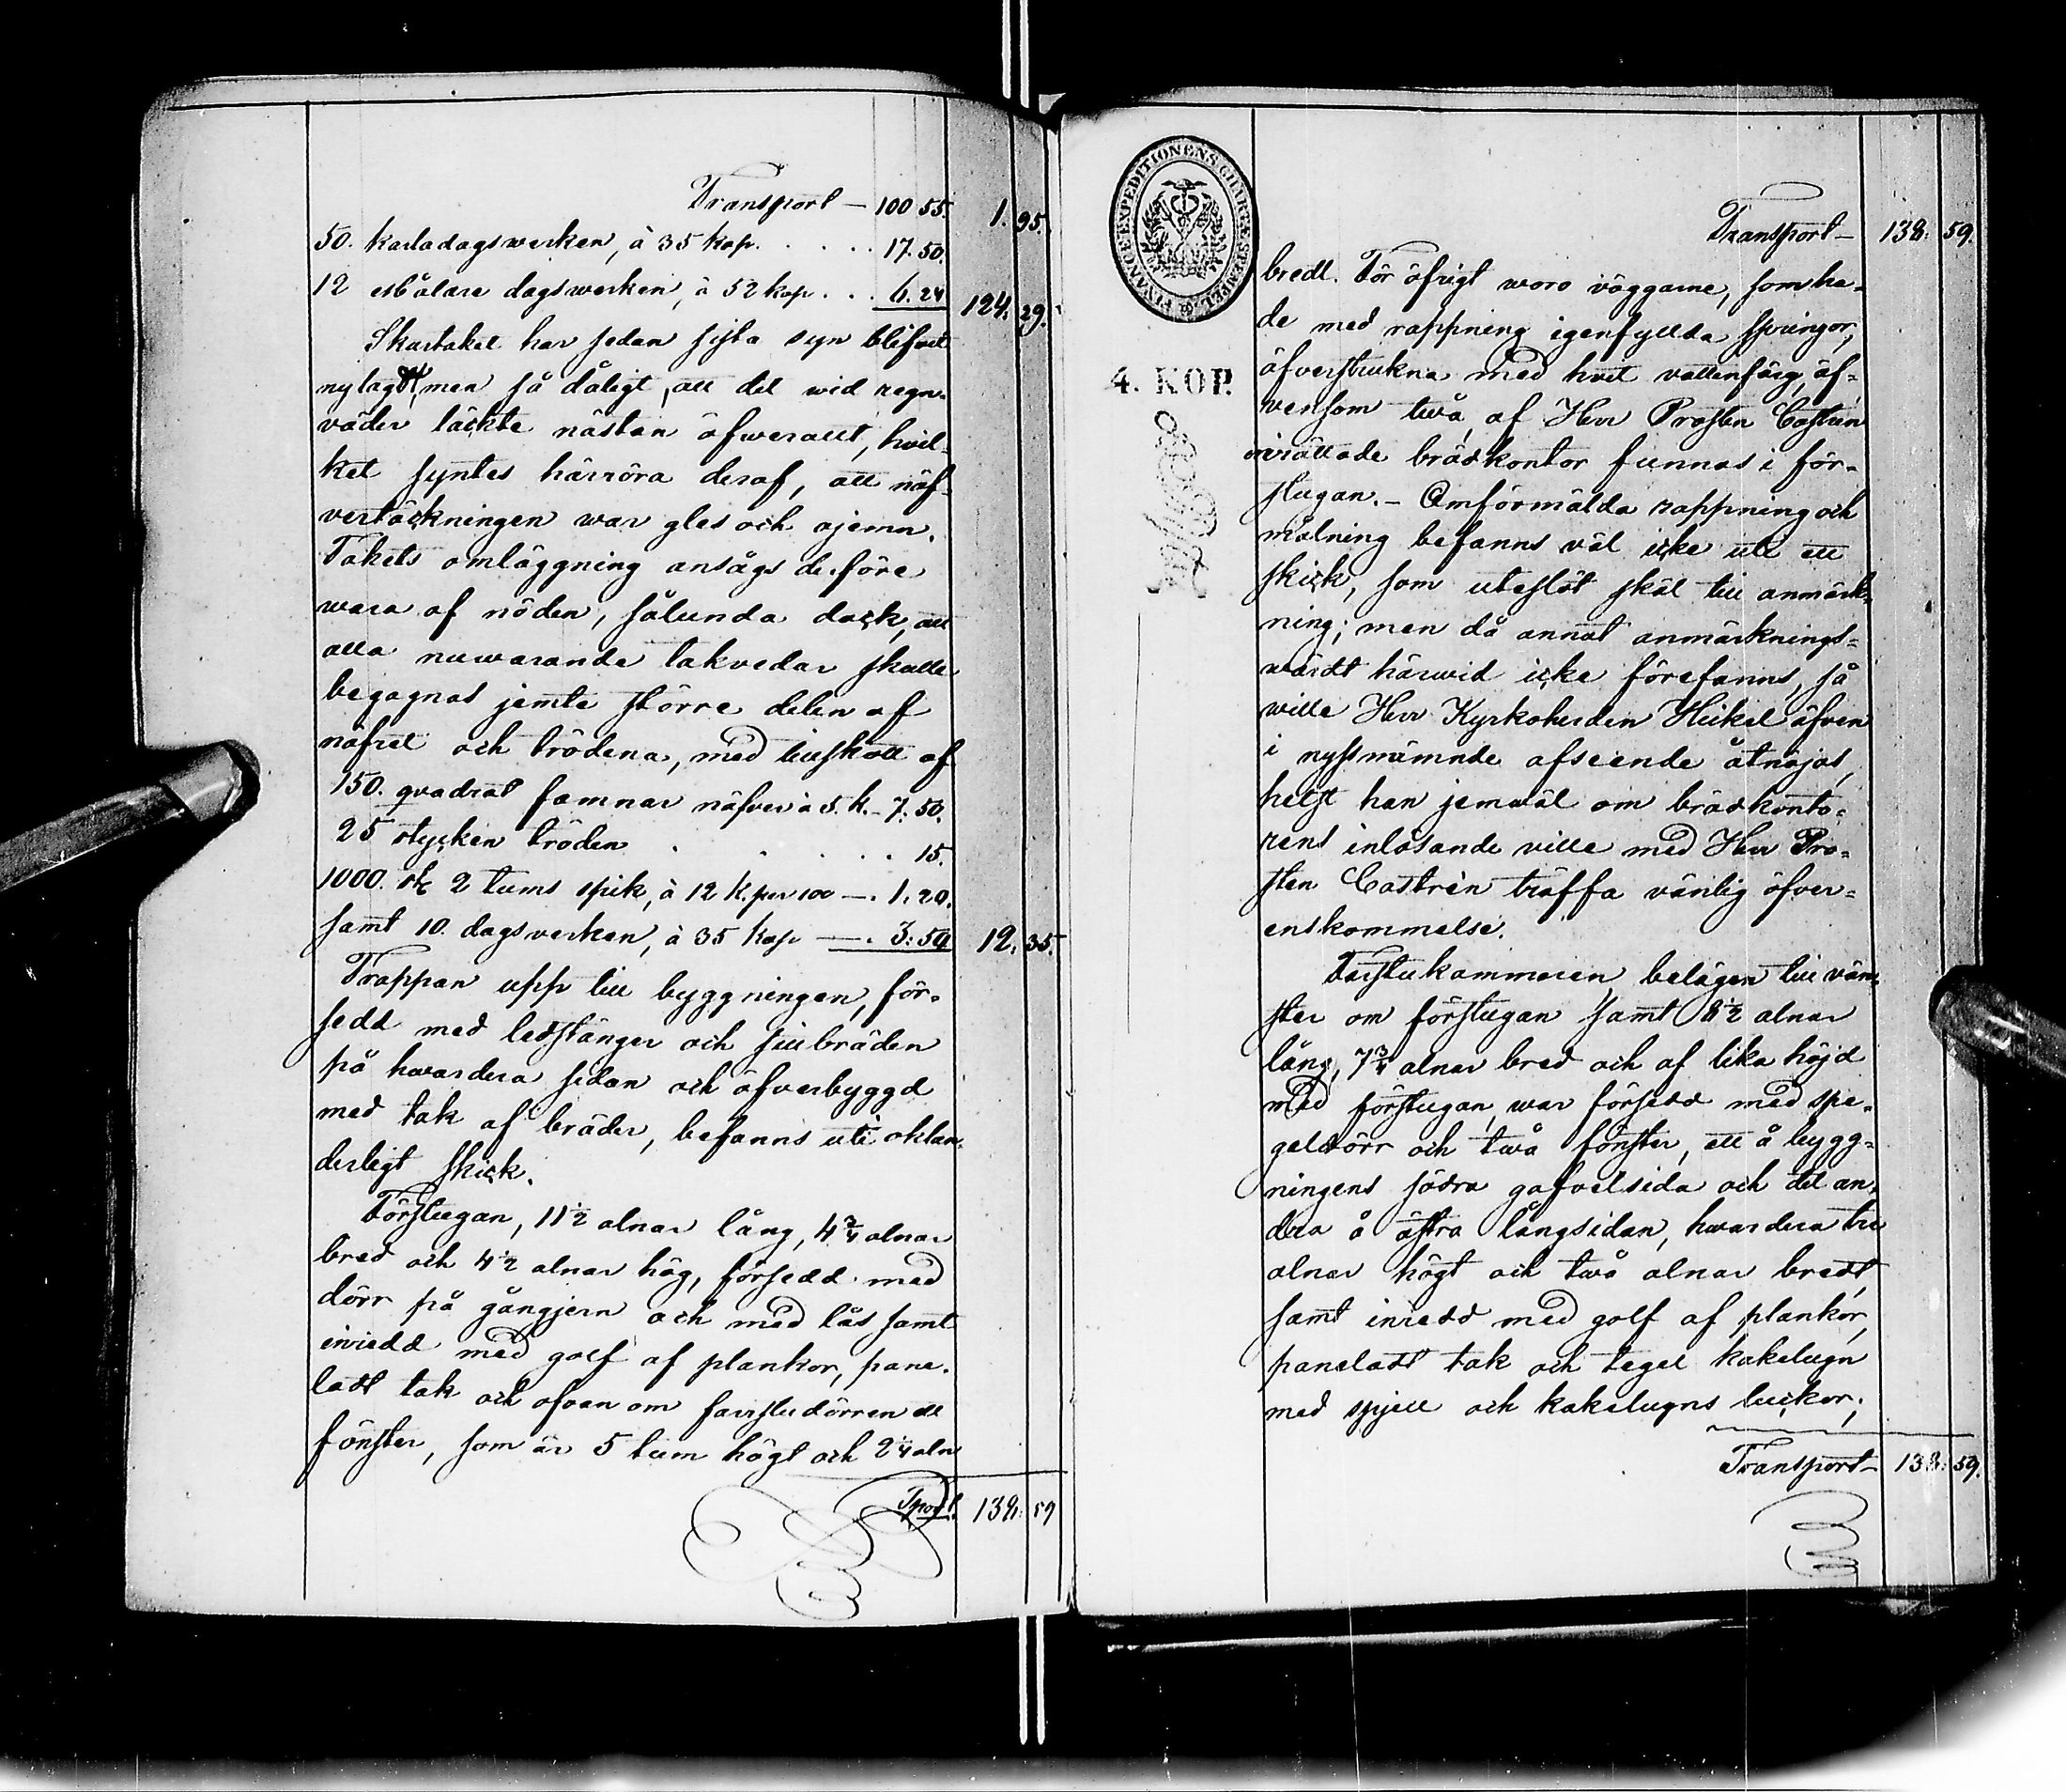 Transport — 100 55. 1. 95.
50. karladagswerken, à 35 kop. . . . . 17. 50.
12 dagswerken, à 52 kop . . . 6. 24 124. 29.
Skartaket har sedan sista syn blifvit
nylagdt, men så dåligt, att det wid regn-
väder läckte nästan öfwerallt, hvil-
ket syntes härröra deraf, att näf-
vertäckningen war gles och ojemn.
Takets omläggning ansågs derföre
wara af nöden, sålunda dock, att
alla nuwarande takvedar skulle
begagnas jemte större delen af
näfret och trödena, med tillskott af
150. qvadrat famnar näfver à 5. k. - 7. 50.
25 stycken tröden . . . . . 15.
1000. st. 2 tums spik, à 12 k. per 100 —. 1. 20.
samt 10. dagsverken, à 35 kop —. 3: 50 12. 35.
Trappan upp till byggningen, för-
sedd med ledstänger och sittbräden
på hwardera sidan och öfverbyggd
med tak af bräder, befanns uti oklan-
derligt skick.
Förstugan, 11½ alnar lång, 4¾ alnar
bred och 4½ alnar hög, försedd med
dörr på gångjern och med lås samt
inredd med golf af plankor, pane-
ladt tak och ofvan om farstudörren ett
fönster, som är 5 tum högt och 2¼ aln
Tport. 138: 59
FINANCE EXPEDITIONENS CHARTÆ STEMPEL
4. KOP.
Transport — 138: 59.
bredt. För öfrigt woro väggarne, som ha-
de med rappning igenfyllda springor,
öfverstrukna med hvit vattenfärg, äf-
vensom twå, af Herr Prosten Castrén
inrättade brädkontor funnos i för-
stugan. - Omförmälda rappning och
målning befanns väl icke uti ett
skick, som uteslöt skäl till anmärk-
ning; men då annat anmärknings-
wärdt härwid icke förefanns, så
wille Herr Kyrkoherden Heikel äfven
i nyssnämnde afseende åtnöjas,
helst han jemwäl om brädkonto-
rens inlösande ville med Herr Pro-
sten Castrèn träffa vänlig öfver-
enskommelse.
Farstukammaren, belägen till ven-
ster om förstugan samt 8½ alnar
lång, 7¾ alnar bred och af lika höjd
med förstugan, war försedd med spe-
geldörr och twå fönster, ett å bygg-
ningens södra gafvelsida och det an-
dra å östra långsidan, hwardera tre
alnar högt och twå alnar bredt,
samt inredd med golf af plankor,
paneladt tak och tegel kakelugn
med spjell och kakelugns luckor;
Transport — 138: 59.